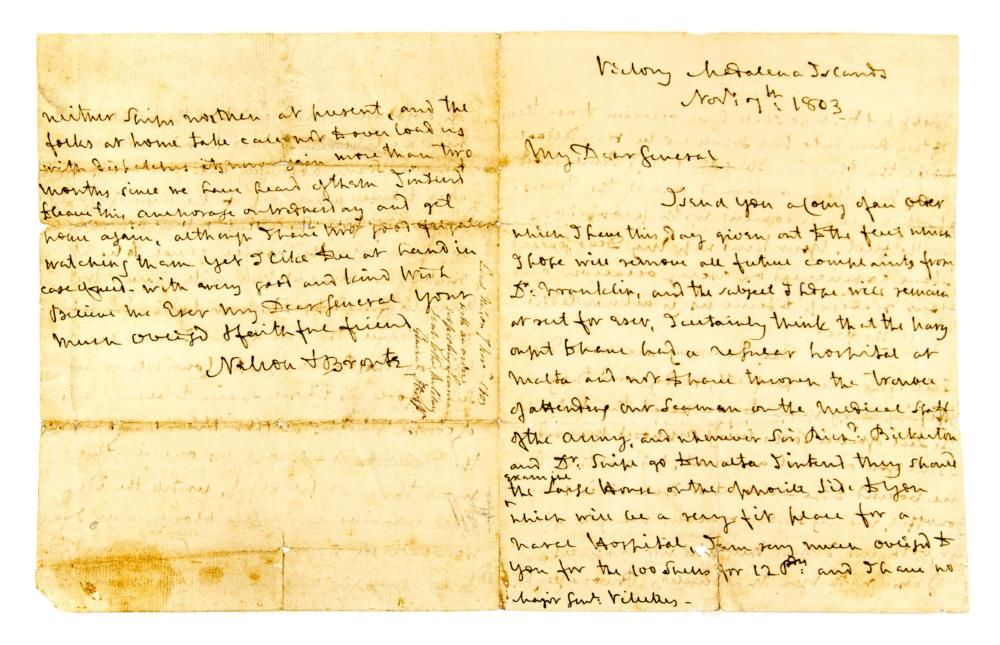 Victory Madalena Islands
Novr: 7th: 1803
My Dear General
I send you a Copy of an order
which I have this day given out to the fleet which
I hope will remove all future complaints from
Dr. Franklin, and the subject I hope will remain
at rest for ever, I certainly think that the Navy
ought to have had a regular hospital at
Malta and not to have thrown the trouble
of attending our Seamen on the Medical Staff
of the Army, and whenever Sir Richd: Bickerton
and Dr. Snipe go to Malta I intend they should
examine
the Large House on the opposite Side to you
which will be a very fit place for a
Naval Hospital, I am very much obliged to
you for the 100 Shells for 12 Pdrs and I have no
Major Genl: Villettes -
neither Ships nor then at present, and the
folks at home take care not to over load us
with dispatches its now gain more than two
months since we have heard of them I intend
to leave this anchorage on Wednesday and get
home again, although I have two good frigates
watching them yet I like to be at hand in
case of need - with every good and kind Wish
Believe me Ever My Dear General Your
much obliged & faithful friend
Nelson & Bronte
Lord Nelson 7 Novr 1803
with an order
respecting Seamen